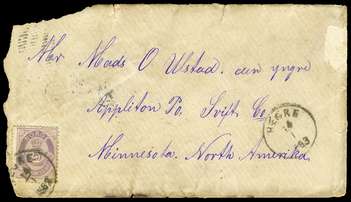 Hr Mads O Ulstad. den yngre
Appliton Po. Svift Co
Minnesota. North Amerika
HEGRE